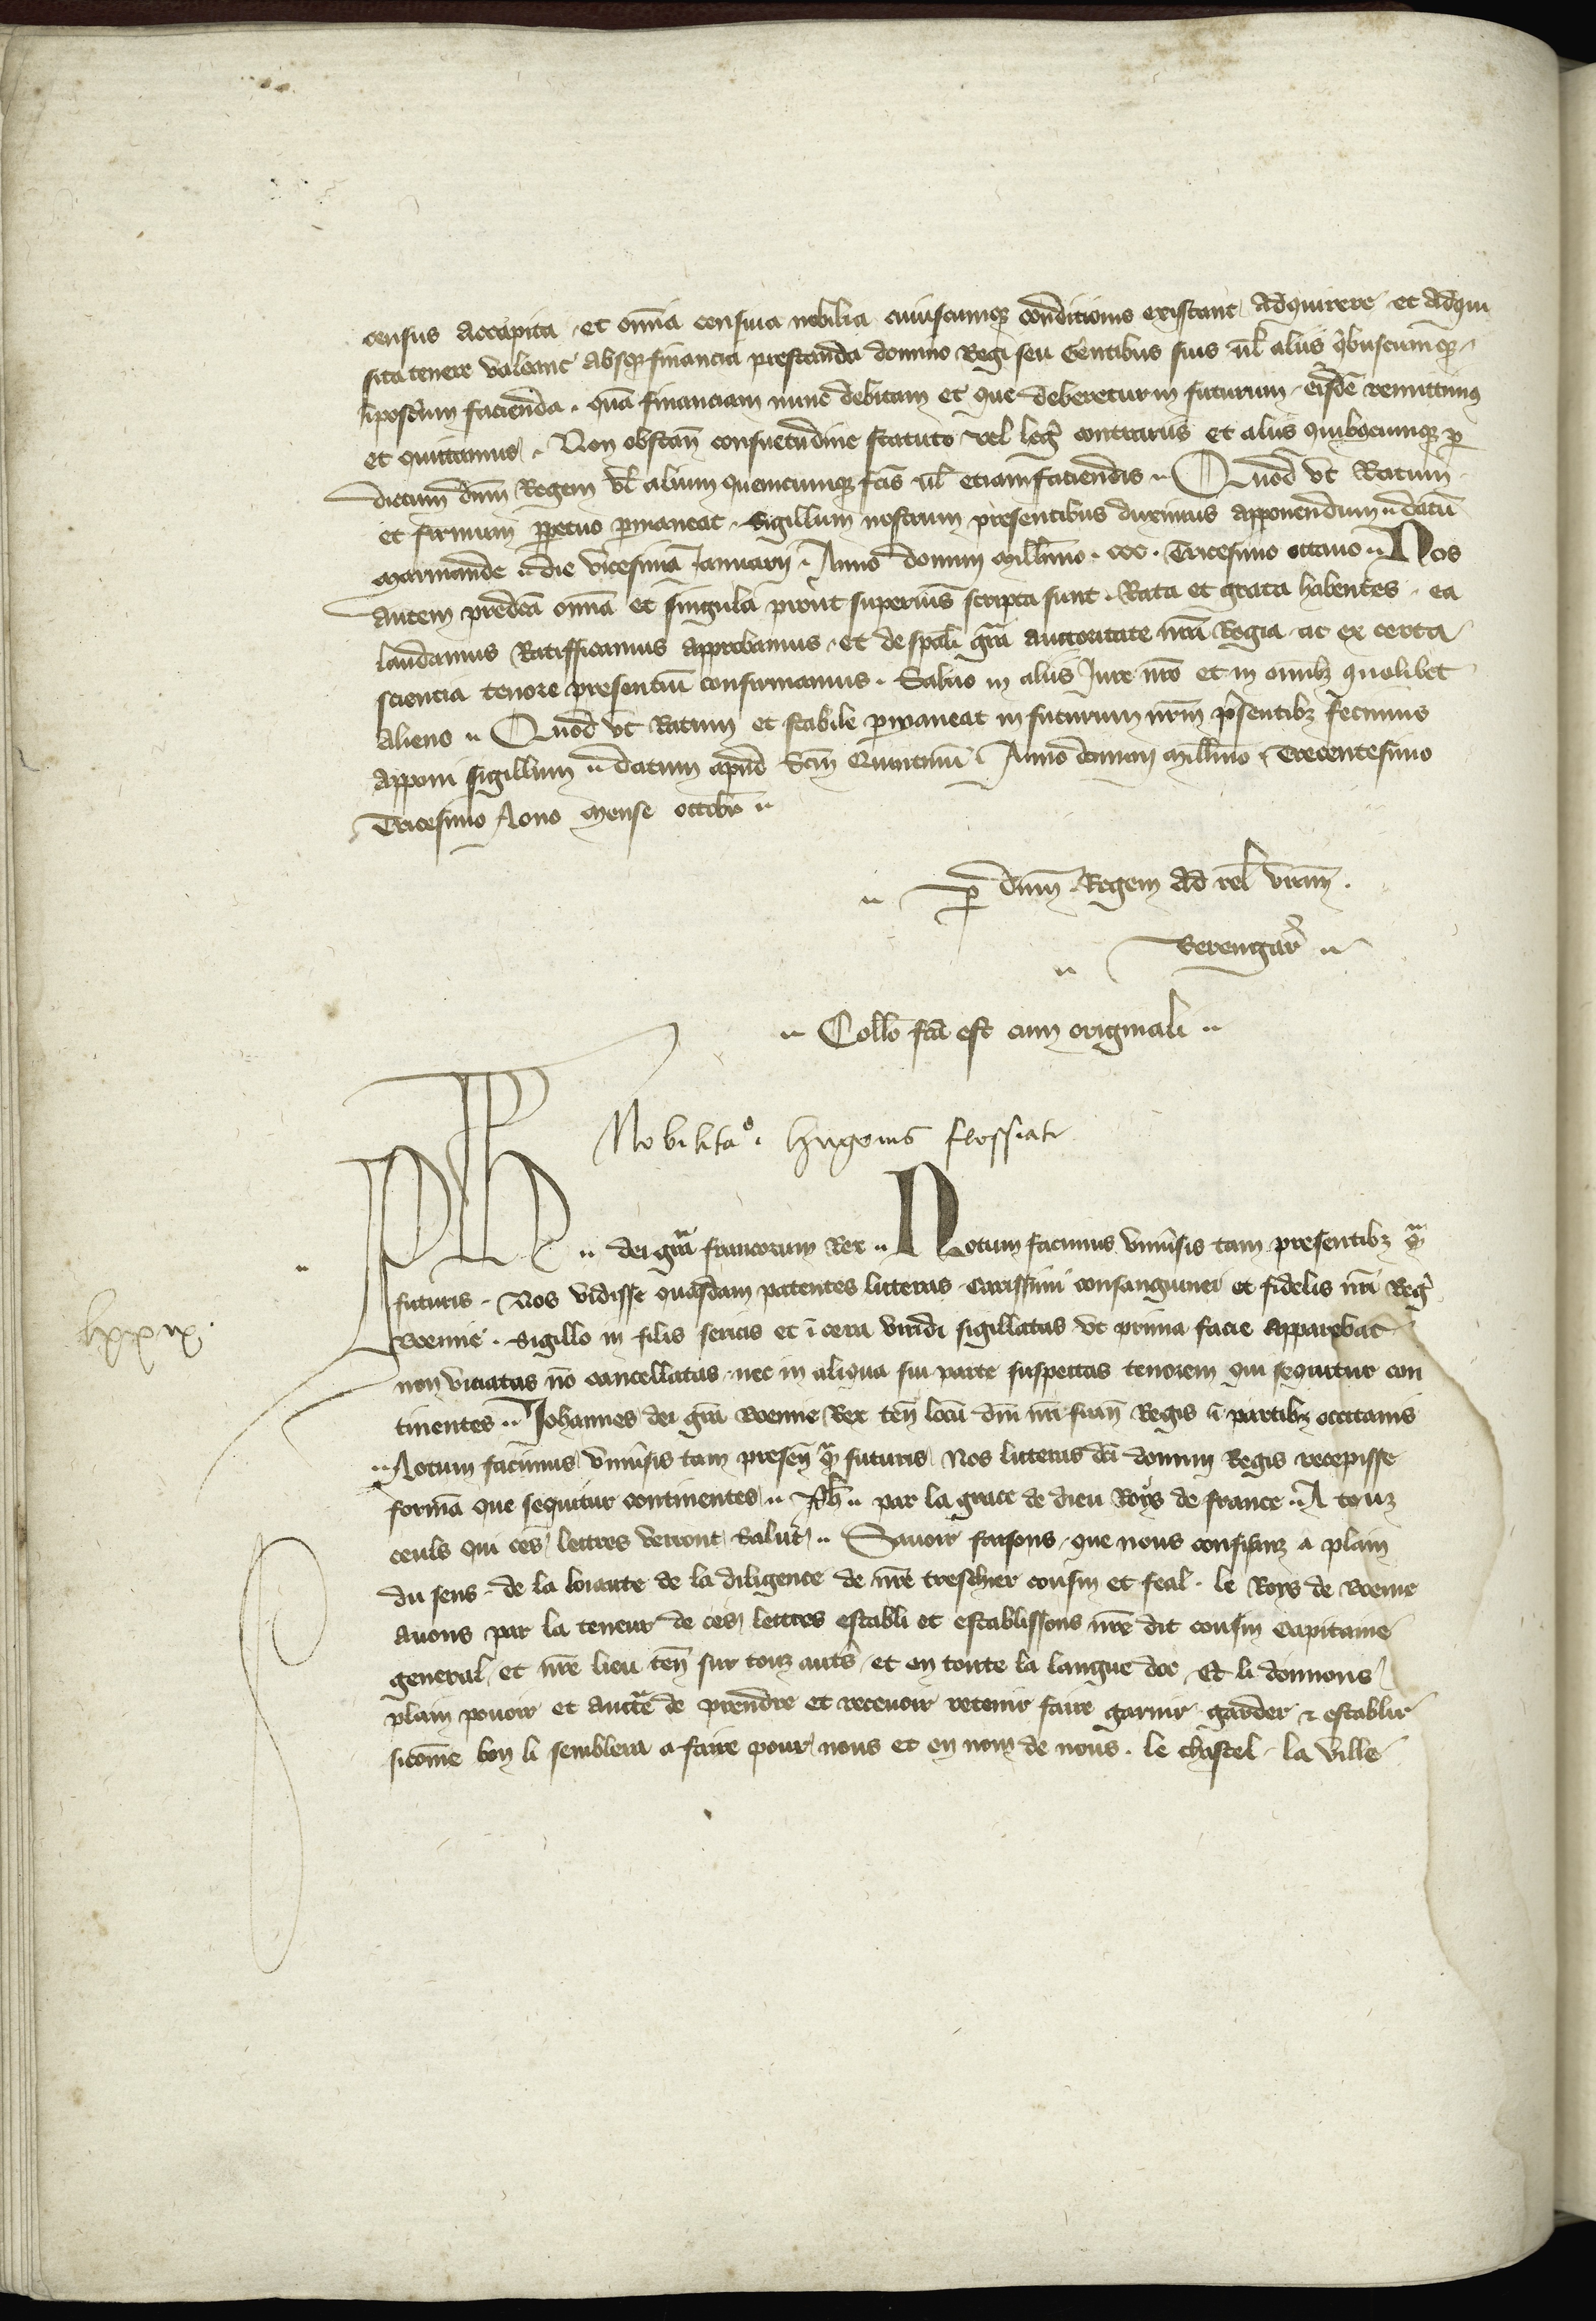 census accapita et om̃ia censiua nobilia cuiuscumqꝫ conditionis existant adquirere et adqui
sita tenere valeant absqꝫ financia prestanda domino Regi seu Gentibus suis ul̃ aliis qͥbuscumqꝫ
īposterum facienda . quã financiam nunc debitam et que deberetur in futurum eisdẽ remittimꝰ
et quittamus . Non obstañ consuetudine statuto vel leg̃ contrariis et aliis quibꝯcumqꝫ ꝑ
dictum dñm Regem vl̃ alium quemcumqꝫ fc̃is ul̃ etiam faciendis .. Quod vt Ratum
et firmum ꝑpetuo ꝑmaneat . Sigillum nostrum presentibus duximus apponendum .. datũ
marmande .. die vicesima Januarij . Anno domini mill̃imo . ccc . Tricesimo octauo .. Nos
autem predc̃a om̃ia et singula prout superius scripta sunt . Rata et grata habentes . ea
laudamus Ratifficamus approbamus . et de sp̃ali gr̃a auctoritate nr̃a Regia ac ex certa
sciencia tenore presentiũ confirmamus . Saluo in aliis Jure nr̃o et in om̃ibꝫ quolibet
alieno .. Quod vt Ratum et stabile ꝑmaneat in futurum nr̃m p̃sentibꝫ fecimus
apponi sigillum .. datum apud Sc̃m Quintinũ . Anno domini mill̃imo . Trecentesimo
Tricesimo Nono mense octobr̃ ..
.. ꝑ dñm Regem ad rel̃ vr̃am .
.. Berengar̃ ..
.. Coll̃o fc̃a est cum originali ..
Nobilita⁰. hugonis flossiati
lxxix.
Ph̃e .. dei gr̃a francorum Rex .. Notum facimus vniũsis tam presentibꝫ qᷓ
futuris . Nos vidisse quasdam patentes litteras Carissimi consanguinei et fidelis nr̃i Reg̃
Boemie . Sigillo in filis sericis et ĩ cera viridi sigillatas vt prima facie apparebat
non viciatas nõ cancellatas . nec in aliqua sui parte suspectas tenorem qui sequitur con
tinentes .. Johannes dei gr̃a Boemie Rex teñ locũ dñi nr̃i frañ Regis ĩ partibꝫ occitanis
.. Notum facimus vniũsis tam preseñ qᷓ futuris Nos litteras dc̃i domini Regis recepisse
formã que sequitur continentes .. Ph̃ .. par la grace de dieu Roys de france .. A touz
ceuls qui ces lettres verront Salut .. Sauoir faisons . que nous confianz a plain
du sens . de la loiaute de la diligence de nr̃e treschier cousin et feal . le Roys de Boeme
auons par la teneur de ces lettres establi et establissons nr̃e dit cousin Capitaine
general et nr̃e lieu teñ sur touz aut̃s et en toute la langue doc . Et li donnons
plain pouoir et auctᵃe de prendre et receuoir retenir faire garnir garder ⁊ establir
sicom̃e bon li semblera a faire pour nous et en nom de nous . le chastel . la ville